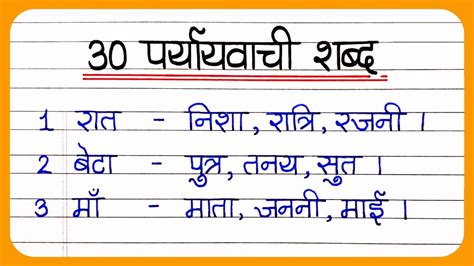 30 पर्यायवाची शब्द
1 रात - निशा, रात्रि, रजनी ।
2 बेटा - पुत्र, तनय, सुत ।
3 माँ - माता, जननी, माई ।